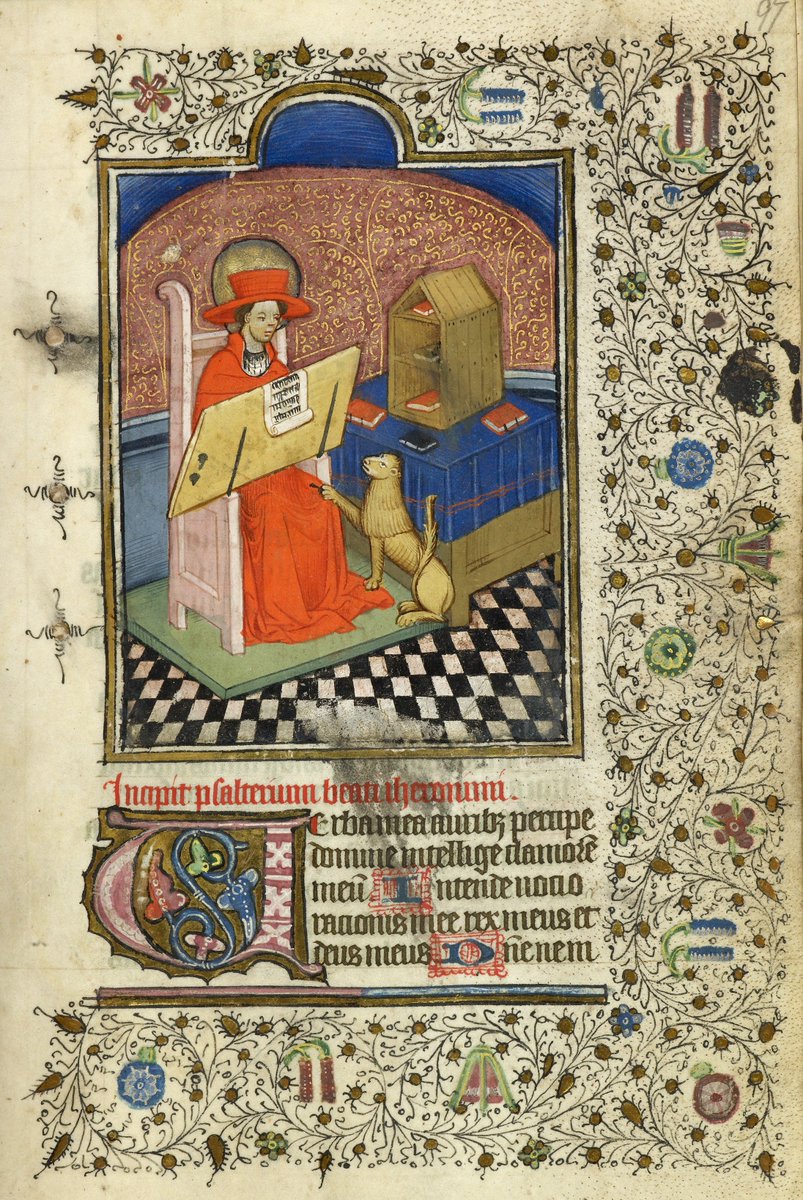 97
Incipit psalterium beati iheronimi.
VErba mea auribꝫ percipe
domine intellige clamorē
meū Intende uoci o
rationis mee rex meus et
deus meus Dne ne in